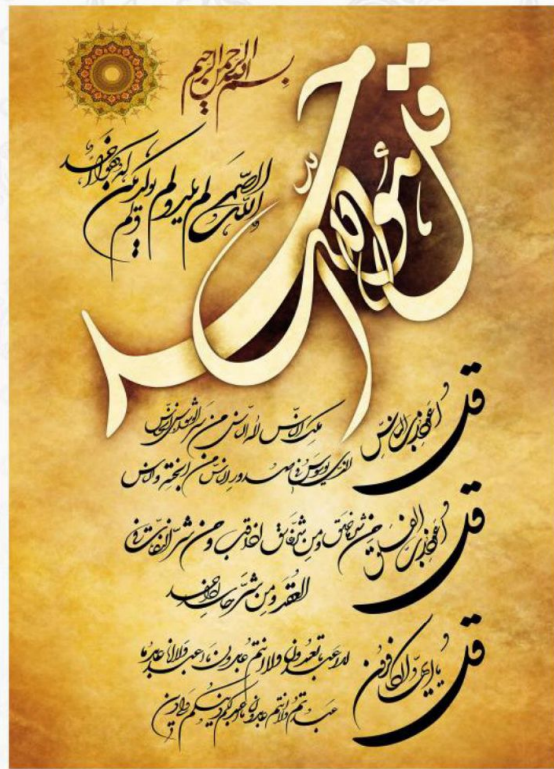 بسم الله الرحمن الرحیم
قل هو الله أحد
الله الصمد لم یلد و لم یولد و لم یکن له کفوا احد
قل أعوذ برب الناس
ملک الناس اله الناس من شر الوسواس الخناس
الذی یوسوس فی صدور الناس من الجنة و الناس
قل أعوذ برب الفلق
من شر ما خلق و من شر غاسق اذا وقب و من شر النفاثات فی
العقد و من شر حاسد اذا حسد
قل یا ایها الکافرون
لا اعبد ما تعبدون و لا انتم عابدون ما اعبد و لا انا عابد ما
عبدتم و لا انتم عابدون ما اعبد لکم دینکم و لی دین